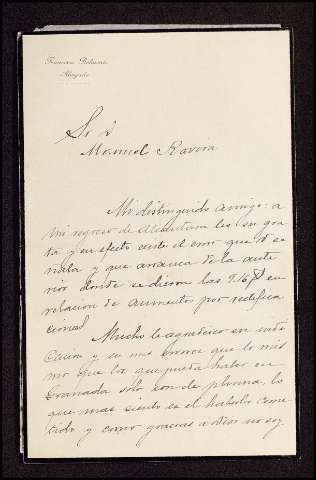 Abogado
Sr D
Manuel Ravira
Mi distinguido amigo: a
mi regreso de leo su gra
ta y en efecto existe el error que V se
ñala y que arranca de la ante
rior donde se dieron las en
relacion de aumentos por rectifica
ciones
Mucho le agradezco su indi
cacion y en mis errores que lo mis
mo que los que pueda haber en
Granada solo son de pluma, lo
que mas siento es el haberlo come
tido y como gracias a Dios no soy